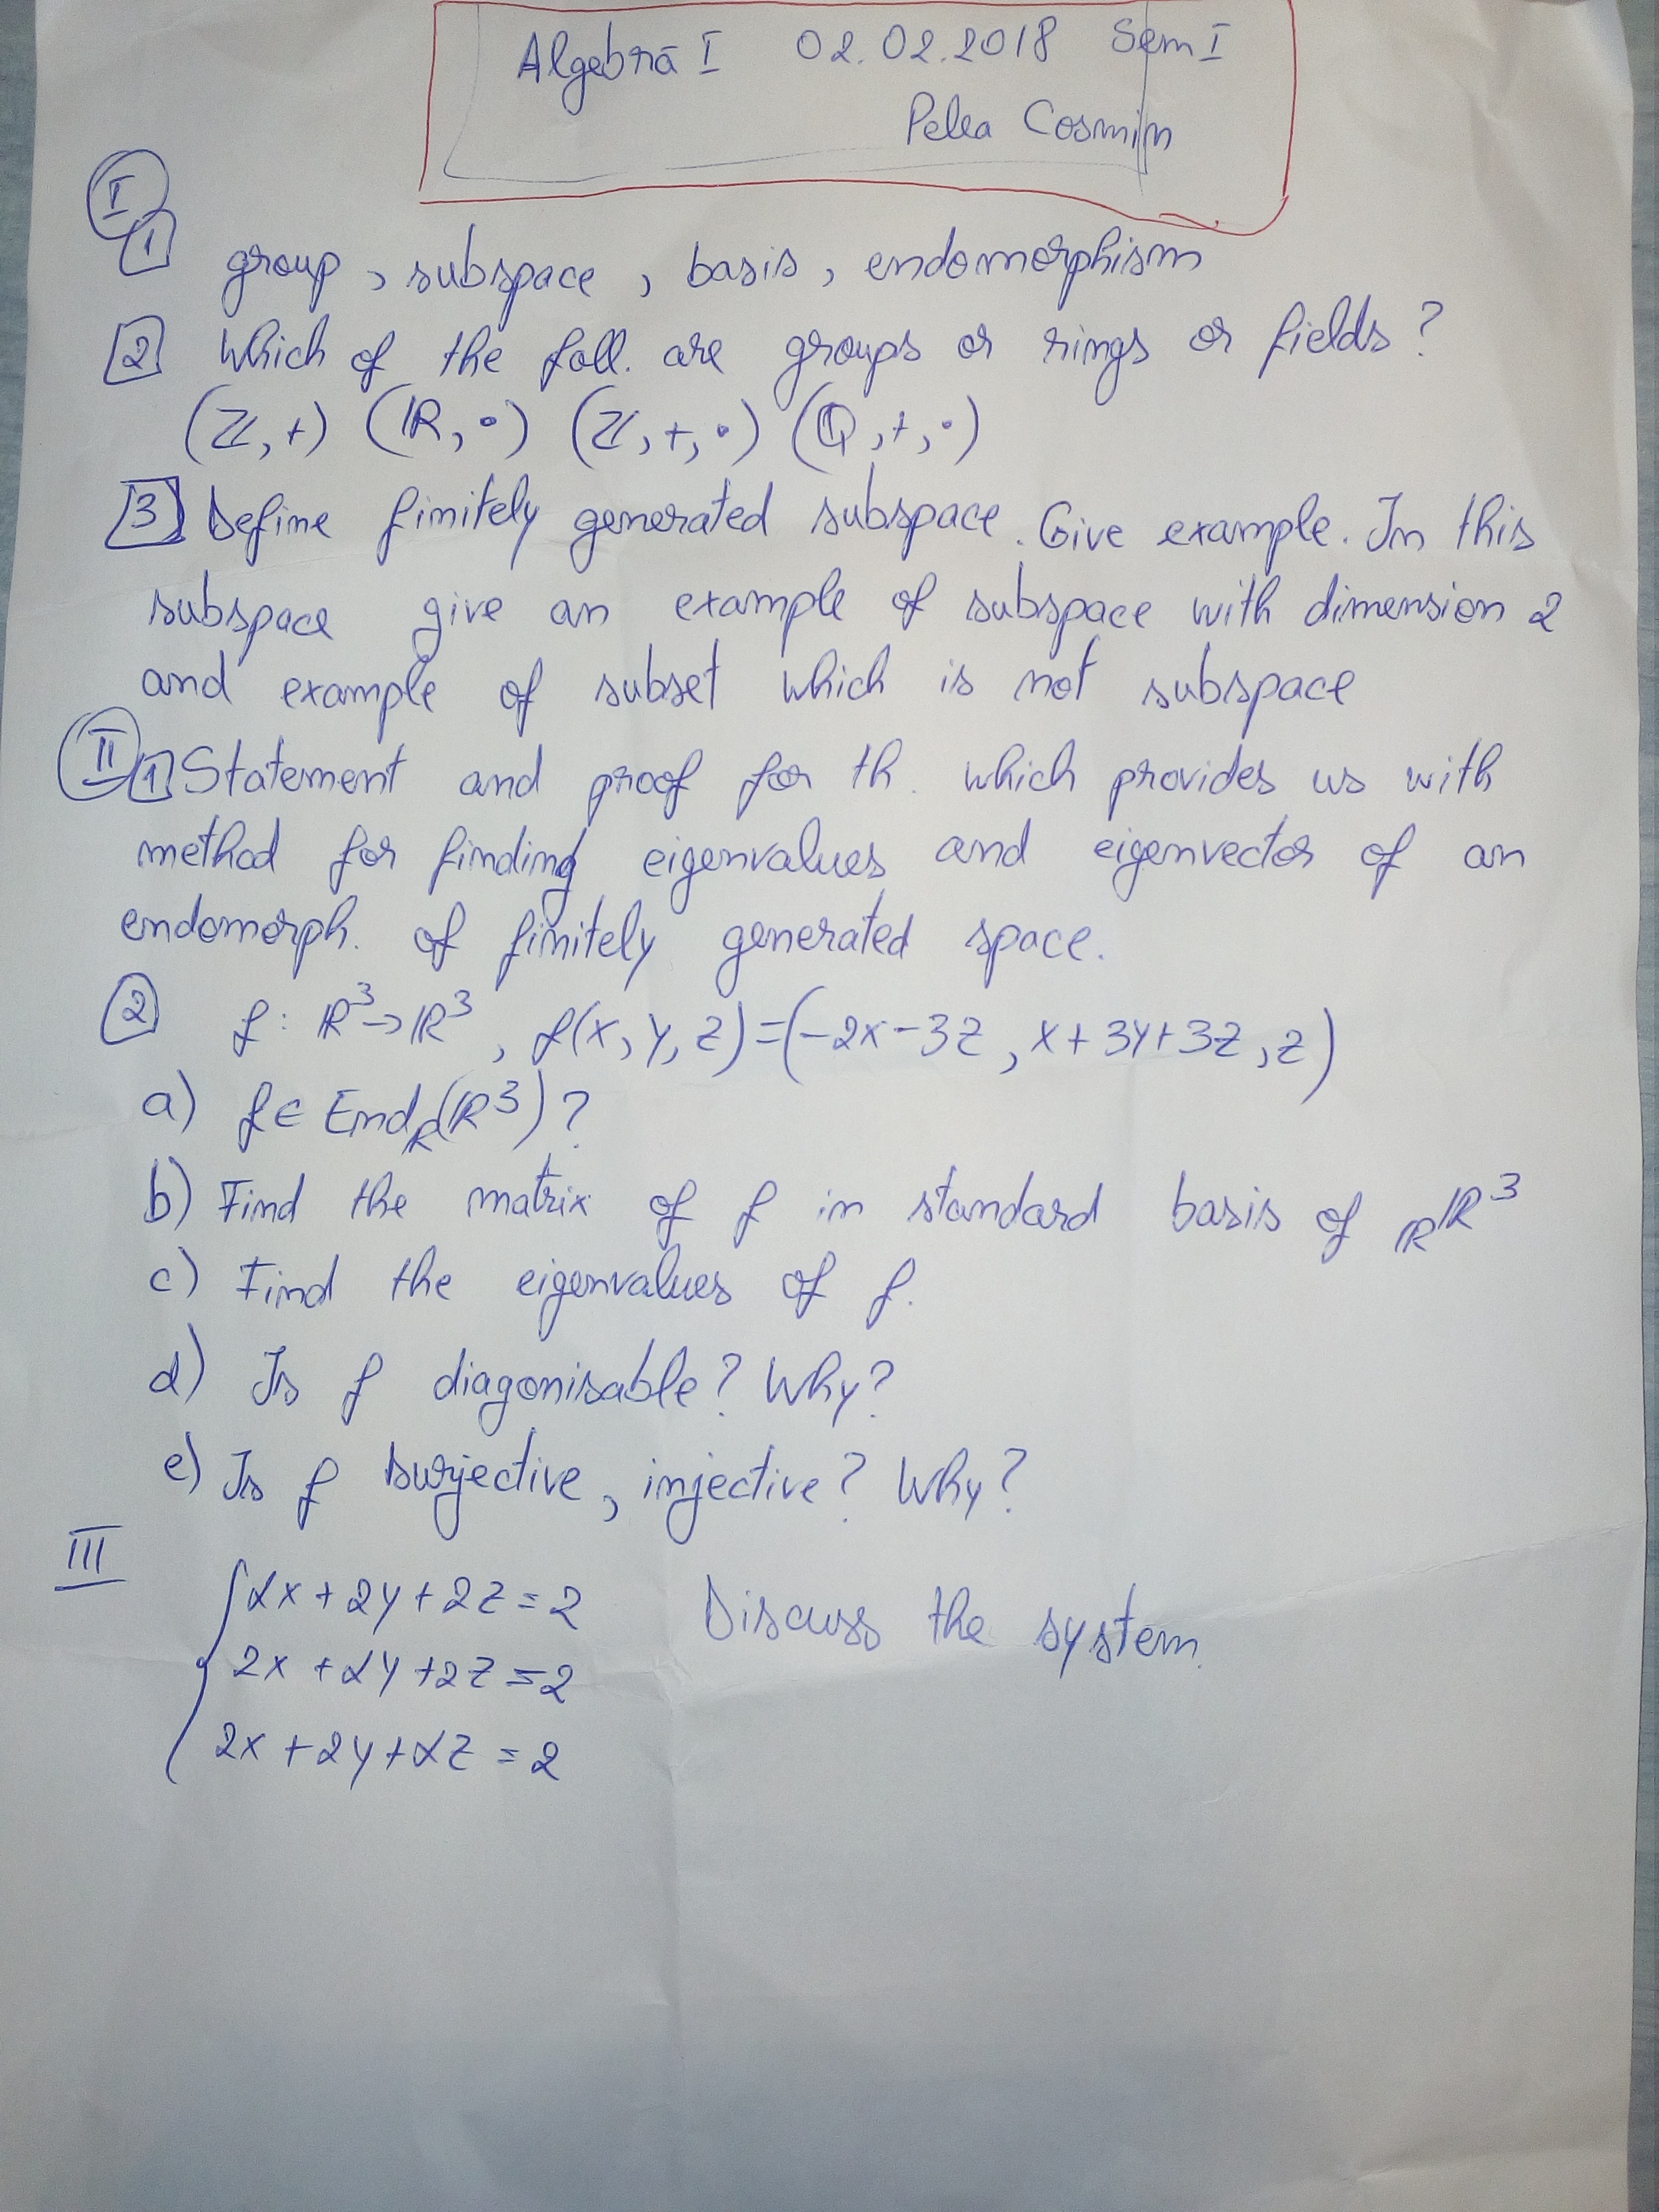 Algebră I 02.02.2018 Sem I
Pelea Cosmin
I
1 group, subspace, basis, endomorphism
2 Which of the foll. are groups or rings or fields?
(ℤ,+) (ℝ,·) (ℤ,+,·) (ℚ,+,·)
3 Define finitely generated subspace. Give example. In this
subspace give an example of subspace with dimension 2
and example of subset which is not subspace
II 1 Statement and proof for th. which provides us with
method for finding eigenvalues and eigenvector of an
endomorph. of finitely generated space.
2 f: ℝ³→ℝ³, f(x, y, z)=(-2x-3z, x+3y+3z, z)
a) f∈ End_ℝ(ℝ³)?
b) Find the matrix of f in standard basis of _ℝℝ³
c) Find the eigenvalues of f.
d) Is f diagonisable? Why?
e) Is f surjective, injective? Why?
III
{αx+2y+2z=2 Discuss the system.
2x+αy+2z=2
2x+2y+αz=2